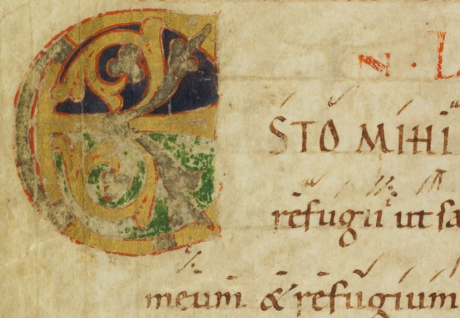 N · L
ESTO MIHI
refugiū ut sa
meum & refugium